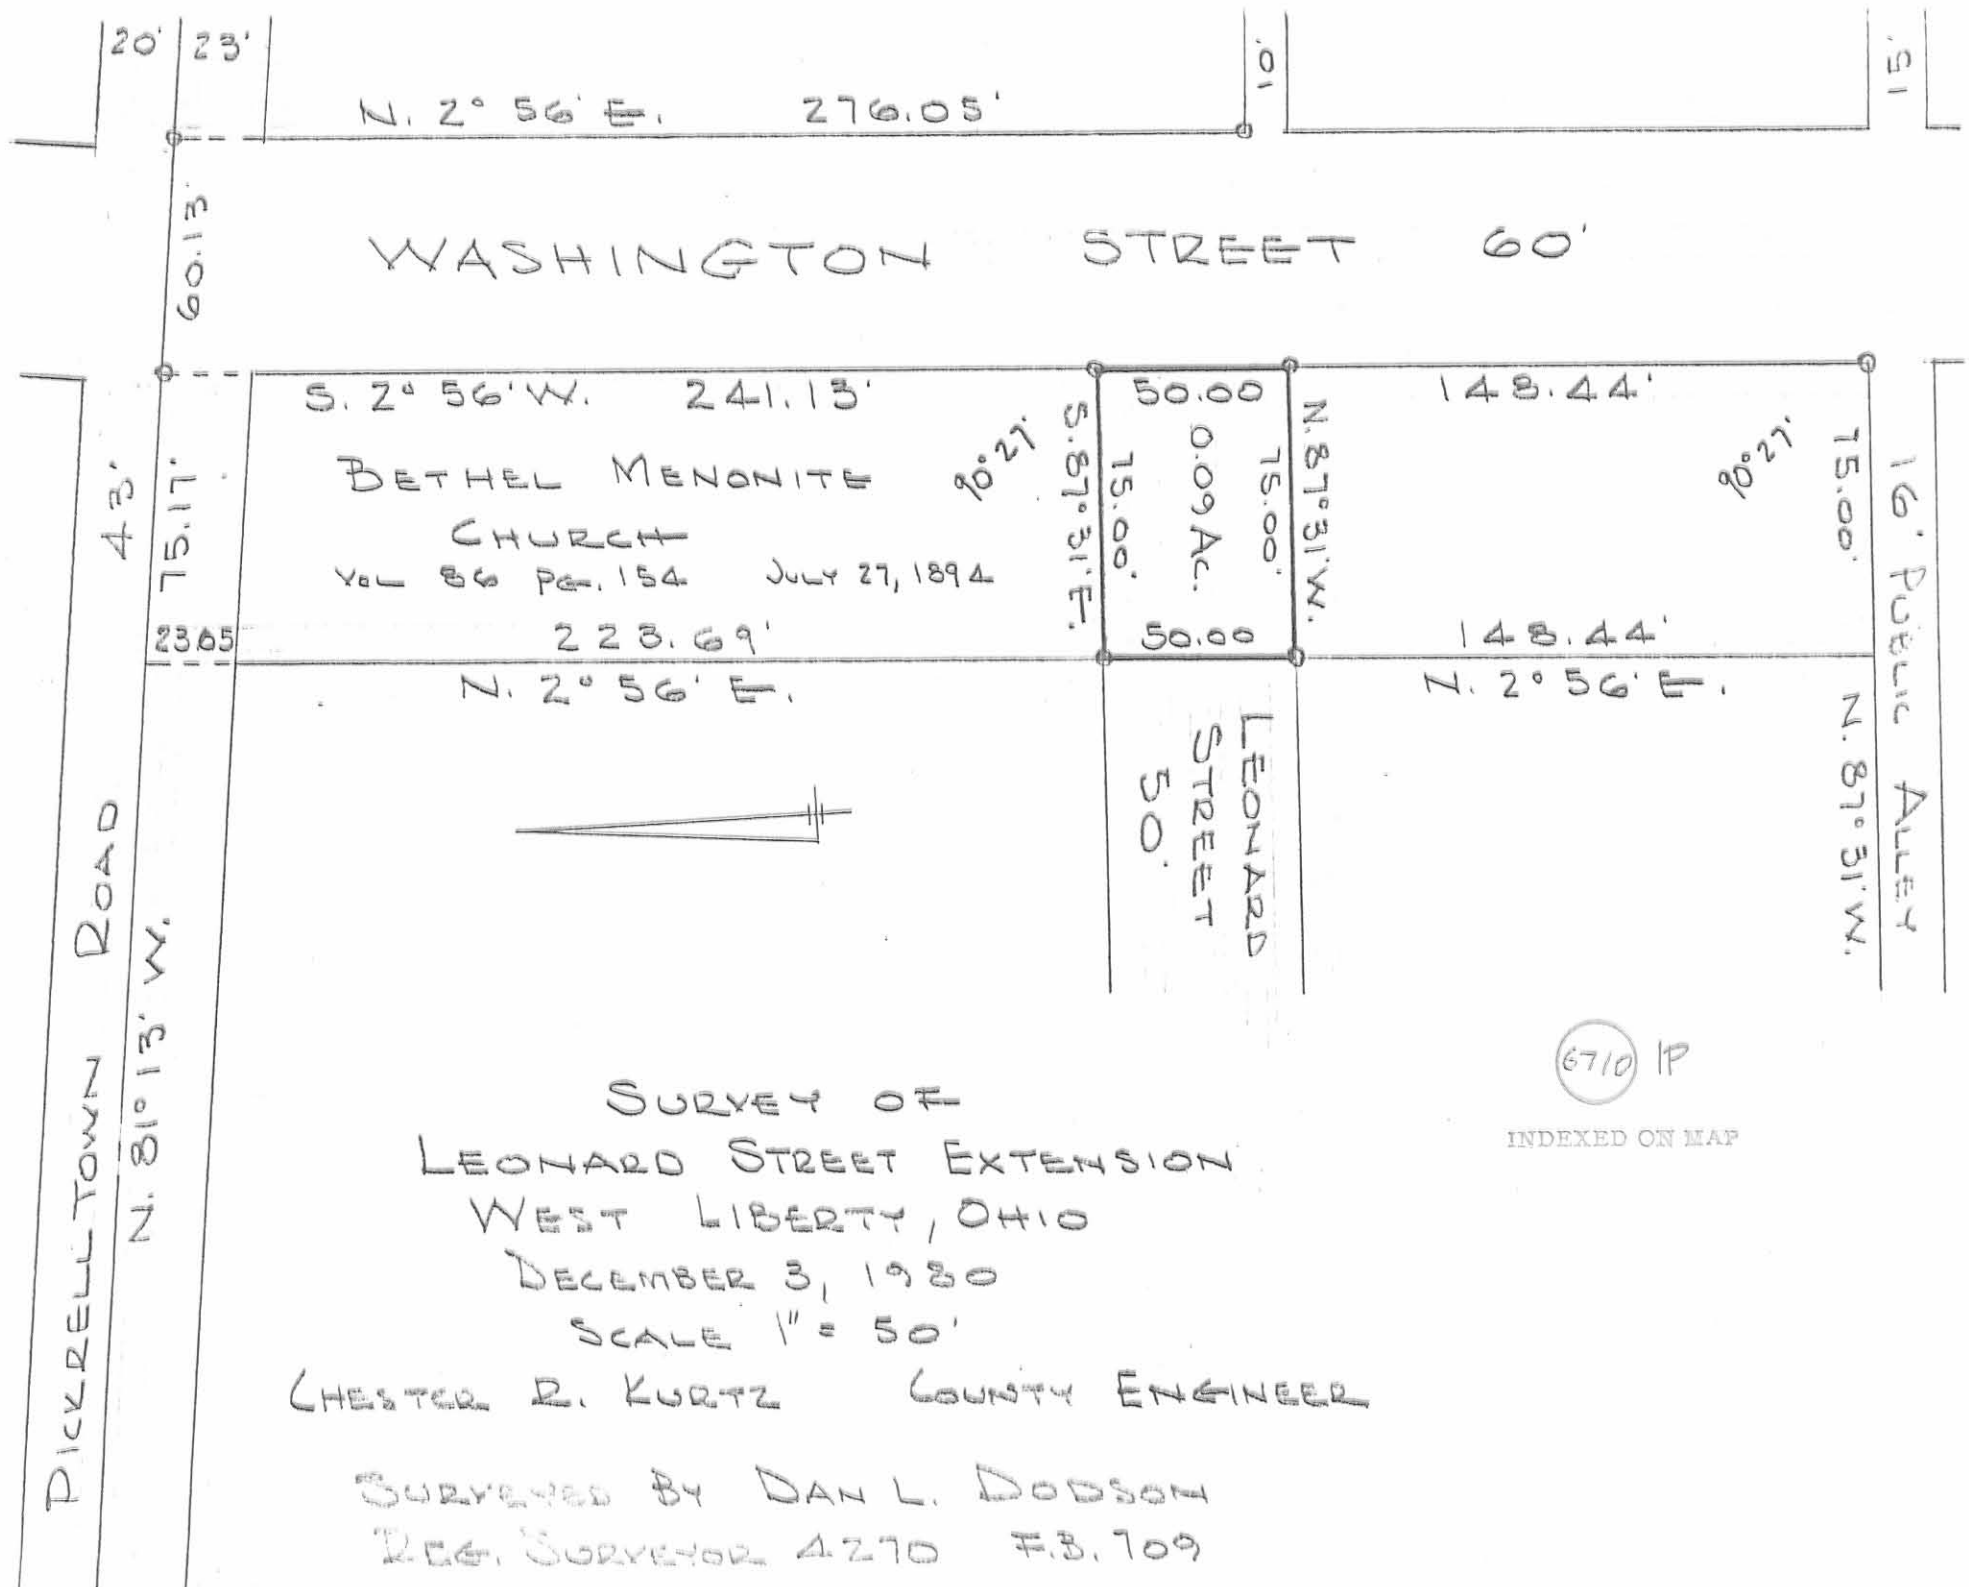 20' 23'
10'
15'
N. 2° 56' E. 276.05'
60.13'
WASHINGTON STREET 60'
S. 2° 56' W. 241.13'
50.00
148.44'
43'
75.17'
BETHEL MENONITE
CHURCH
VOL 86 PG. 154 JULY 27, 1894
90° 27'
S. 87° 31' E.
75.00'
0.09 AC.
75.00'
N. 87° 31' W.
90° 27'
75.00'
16' PUBLIC ALLEY
23.05
223.69'
50.00
148.44'
N. 2° 56' E.
N. 2° 56' E.
N. 87° 31' W.
LEONARD
STREET
50'
PICKRELLTOWN ROAD
N. 81° 13' W.
6710 IP
INDEXED ON MAP
SURVEY OF
LEONARD STREET EXTENSION
WEST LIBERTY, OHIO
DECEMBER 3, 1980
SCALE 1" = 50'
CHESTER R. KURTZ COUNTY ENGINEER
SURVEYED BY DAN L. DODSON
REG. SURVEYOR 4270 F.B. 709